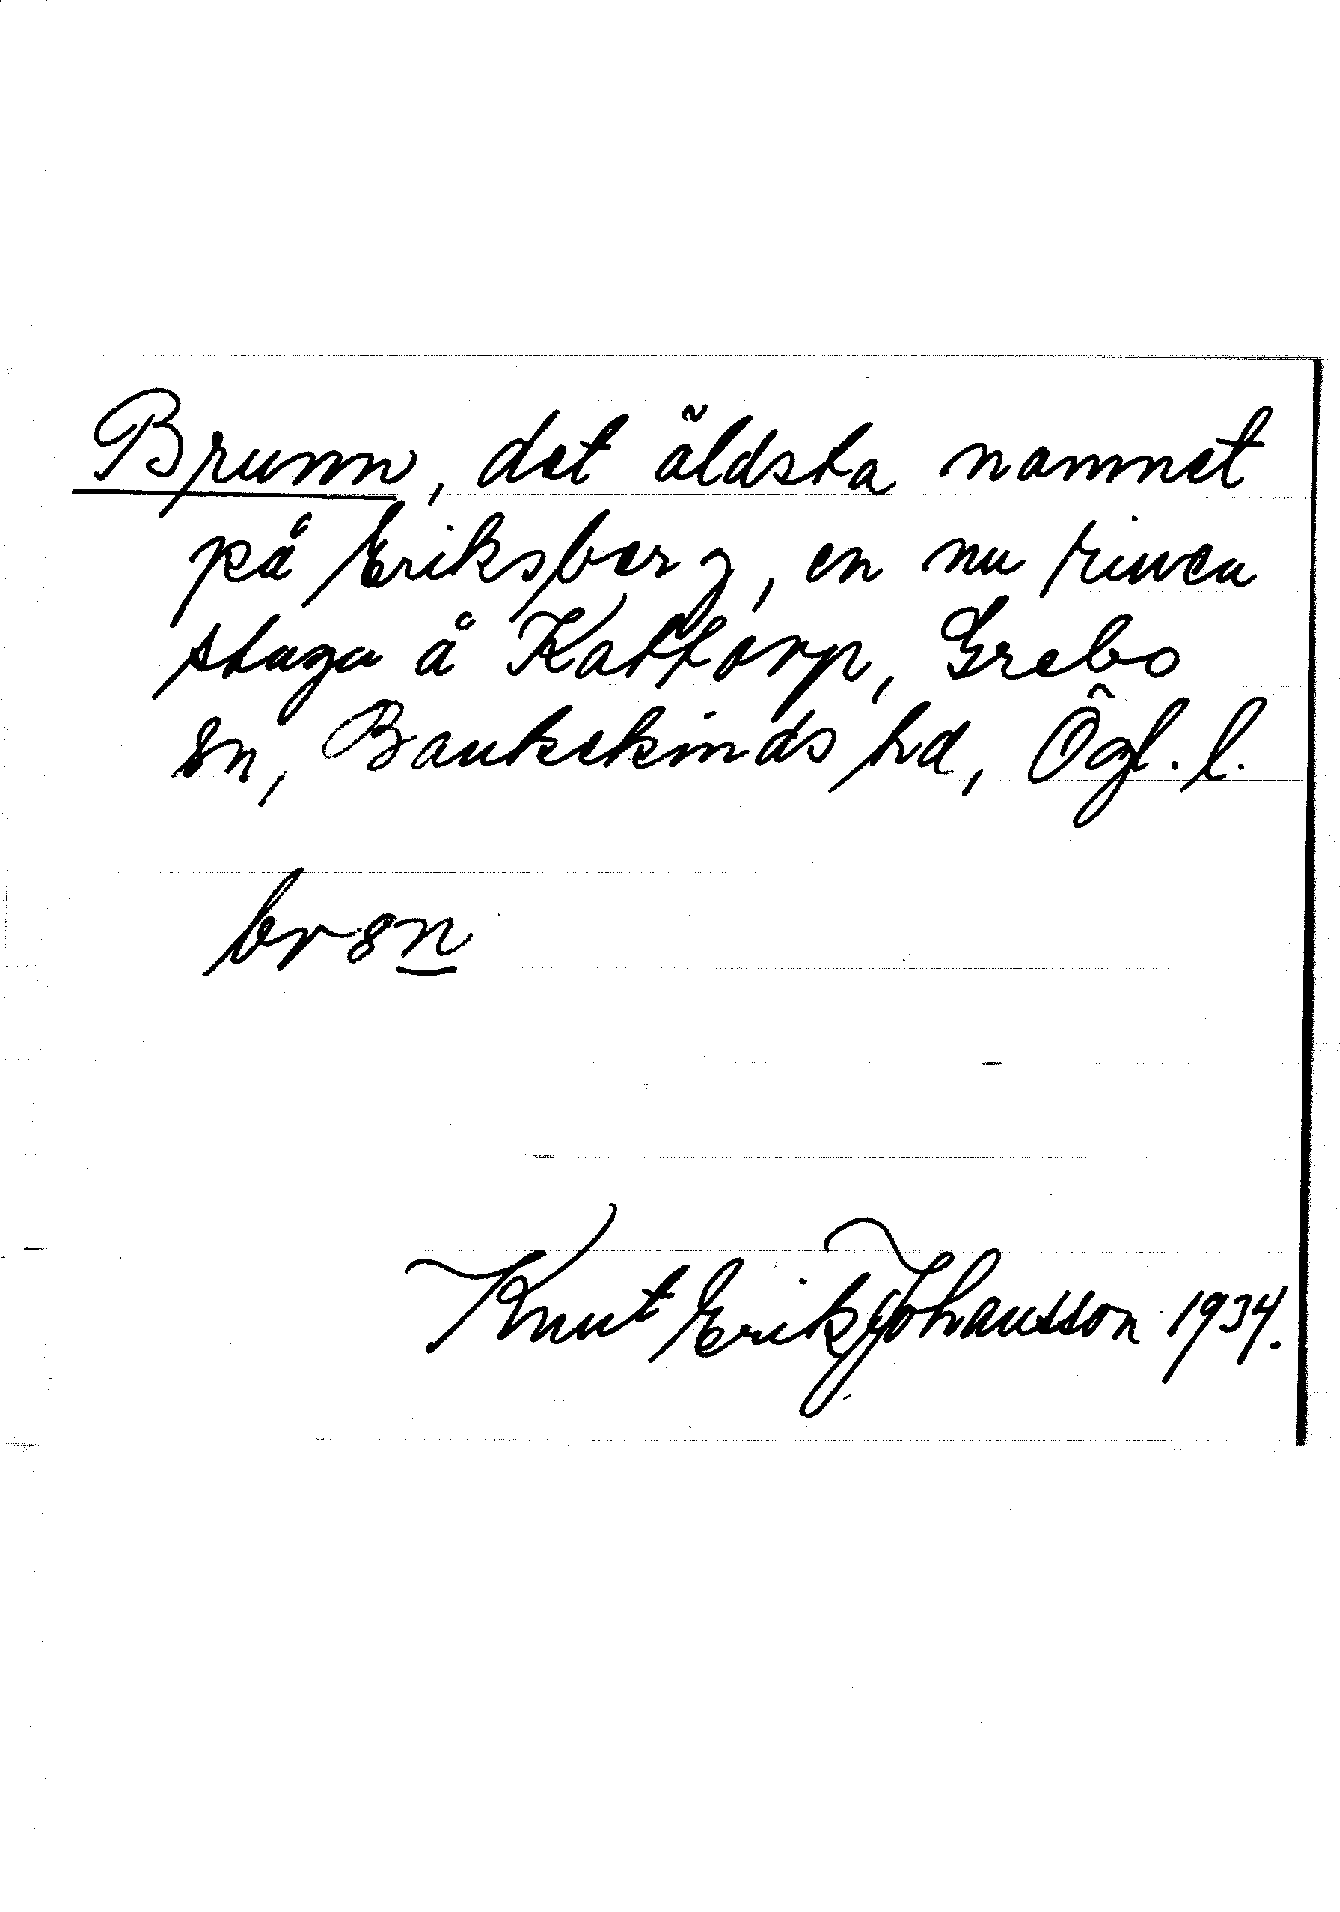 Brunn, det äldsta namnet
på Eriksberg, en nu riven
stuga å Kattorp, Grebo
sn, Bankekinds hd, Ögl. l.
br8n
Knut Erik Johansson 1934.